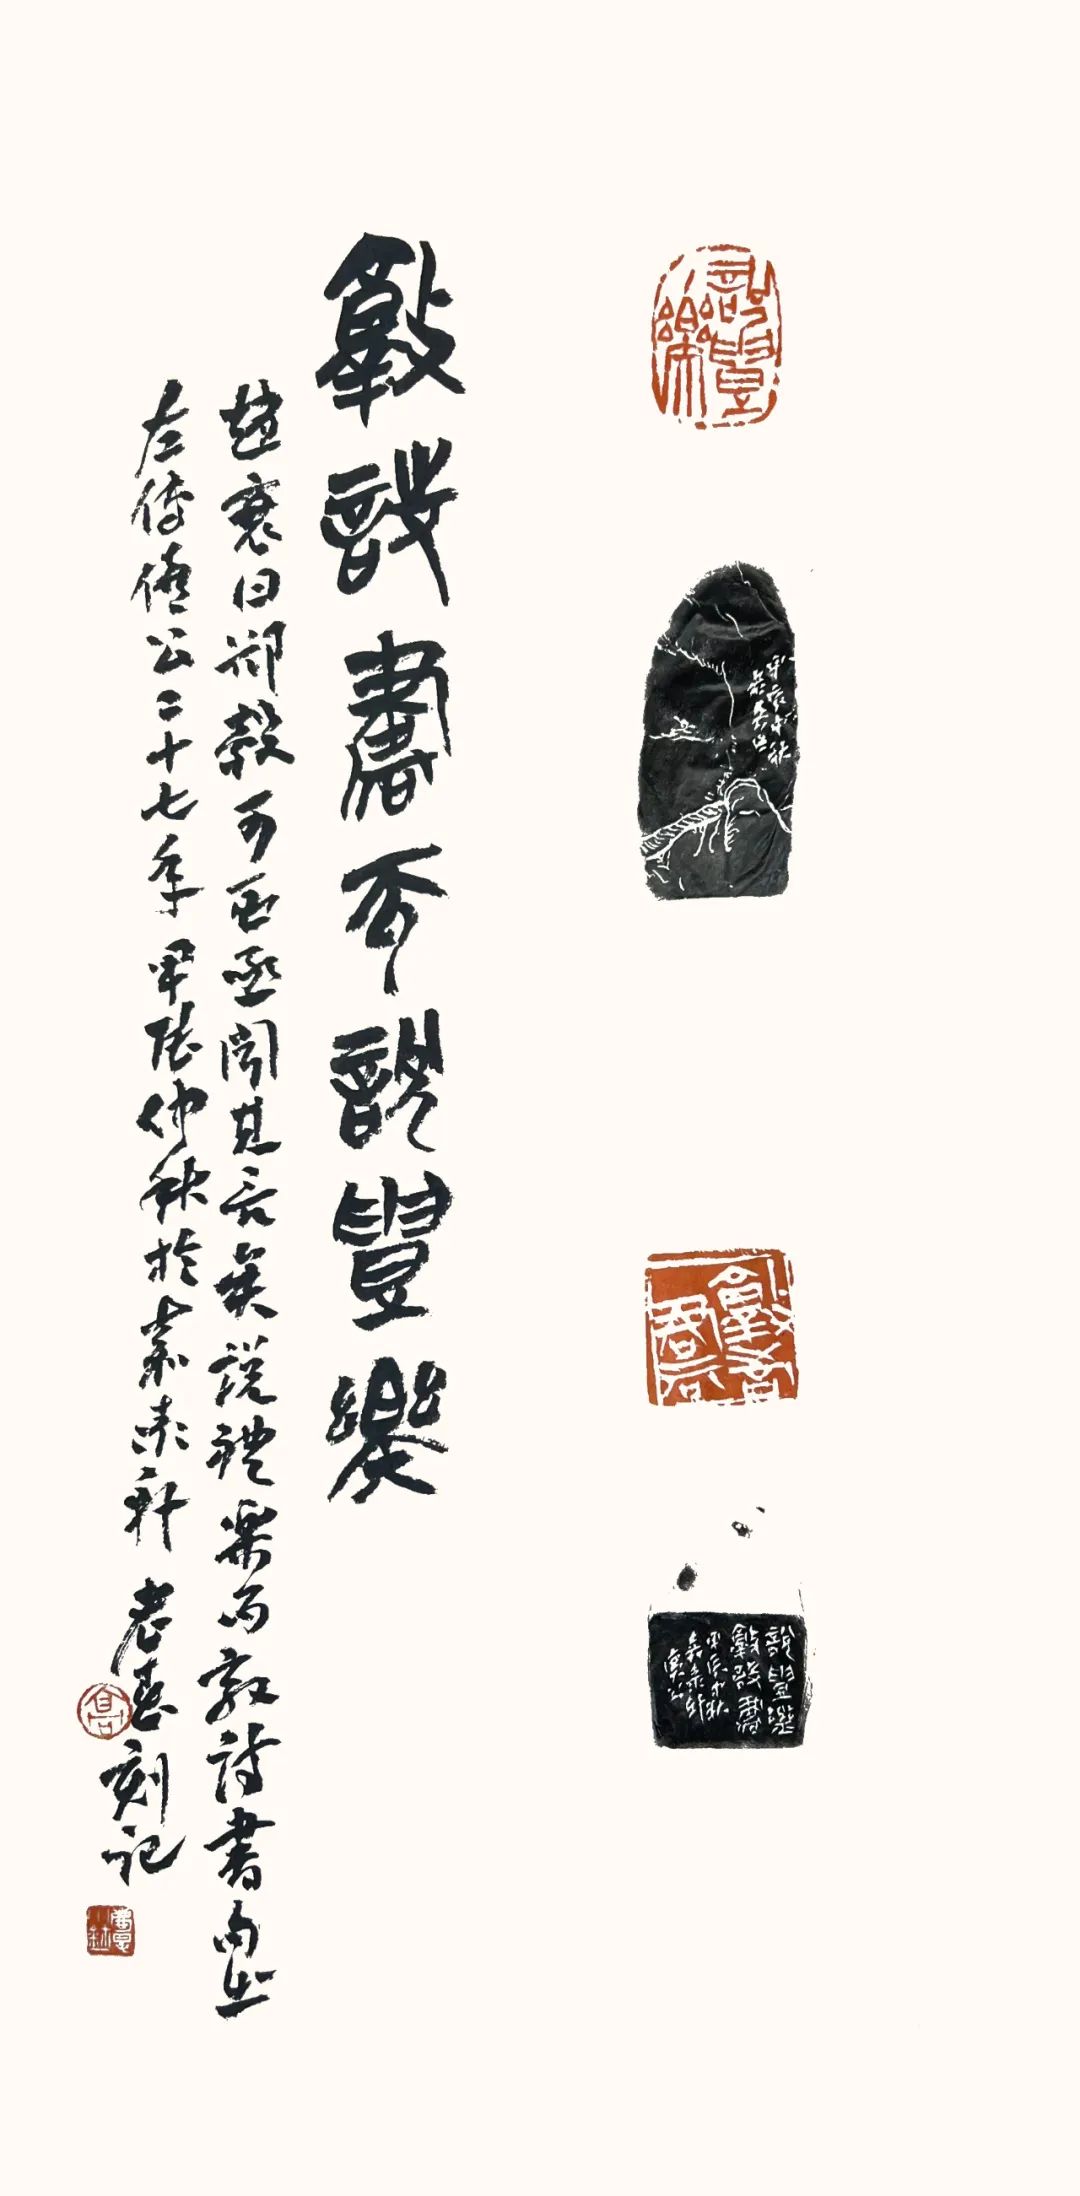 說豊樂
甲辰中秋
說豊樂
敦詩書
甲辰中秋
敦詩書而說豊樂
趙衰曰郤縠可臣亟聞其言矣說禮樂而敦詩書句出
左傳僖公二十七年甲辰仲秋於嘉軒老刻記